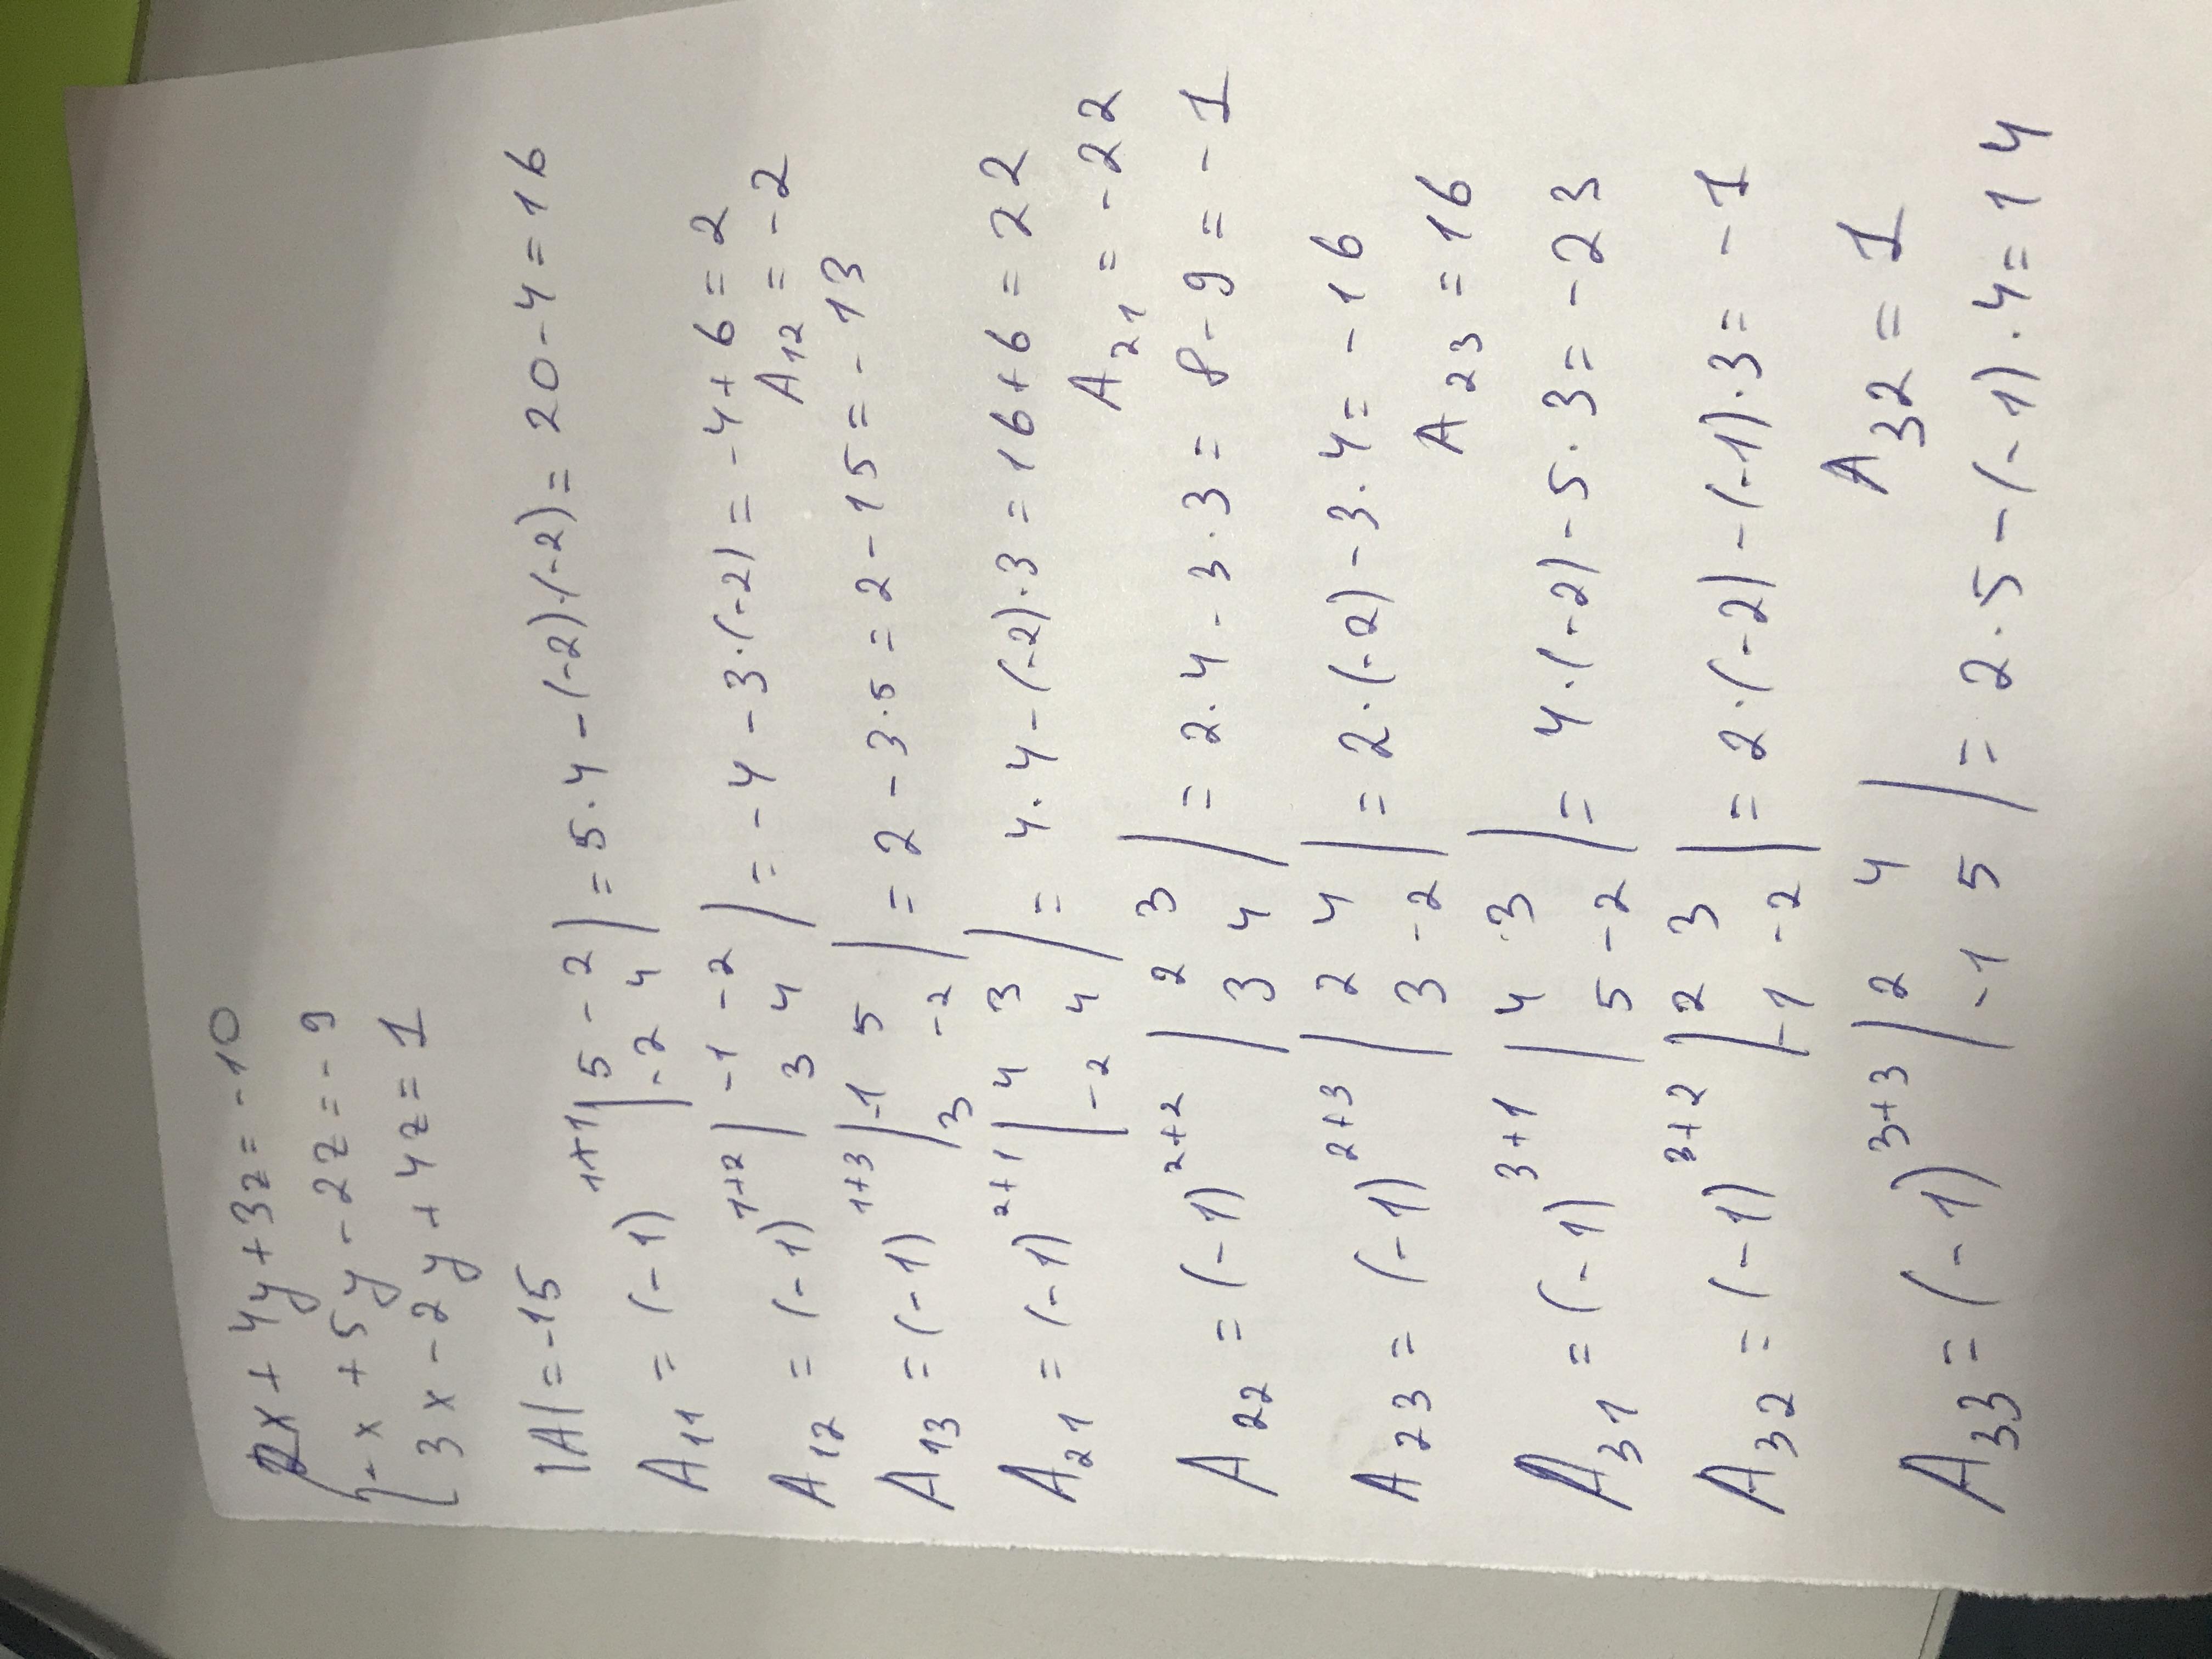 2x + 4y + 3z = -10
-x + 5y - 2z = -9
3x - 2y + 4z = 1
|A| = -15
A11 = (-1)^1+1 |5 -2 / -2 4| = 5·4 - (-2)·(-2) = 20 - 4 = 16
A12 = (-1)^1+2 |-1 -2 / 3 4| = -4 - 3·(-2) = -4 + 6 = 2
A12 = -2
A13 = (-1)^1+3 |-1 5 / 3 -2| = 2 - 3·5 = 2 - 15 = -13
A21 = (-1)^2+1 |4 3 / -2 4| = 4·4 - (-2)·3 = 16 + 6 = 22
A21 = -22
A22 = (-1)^2+2 |2 3 / 3 4| = 2·4 - 3·3 = 8 - 9 = -1
A23 = (-1)^2+3 |2 4 / 3 -2| = 2·(-2) - 3·4 = -16
A23 = 16
A31 = (-1)^3+1 |4 3 / 5 -2| = 4·(-2) - 5·3 = -23
A32 = (-1)^3+2 |2 3 / -1 -2| = 2·(-2) - (-1)·3 = -1
A32 = 1
A33 = (-1)^3+3 |2 4 / -1 5| = 2·5 - (-1)·4 = 14